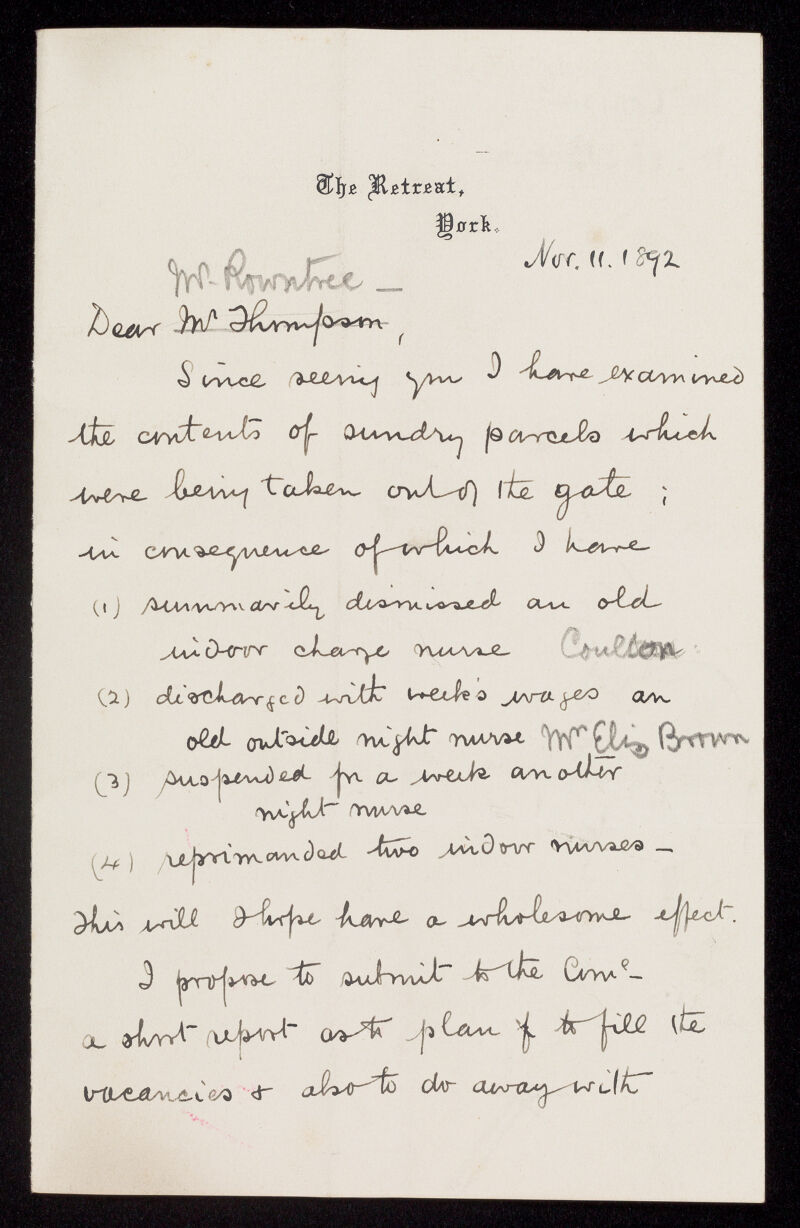 The Retreat,
York.
Nov. 11. 1892
Mr. Rowntree —
Dear Mr Thompson,
Since seeing you I have examined
the contents of sundry parcels which
were being taken out of the gate ;
in consequence of which I have
(1) summarily dismissed an old
indoor charge nurse Coulton
(2) discharged with week's wages an
old outside night nurse Mrs Eliz Brown
(3) suspended for a week another
night nurse
(4) reprimanded two indoor nurses —
This will I hope have a wholesome effect.
I propose to submit to the Come —
a short report as to plan to fill the
vacancies & also to do away with